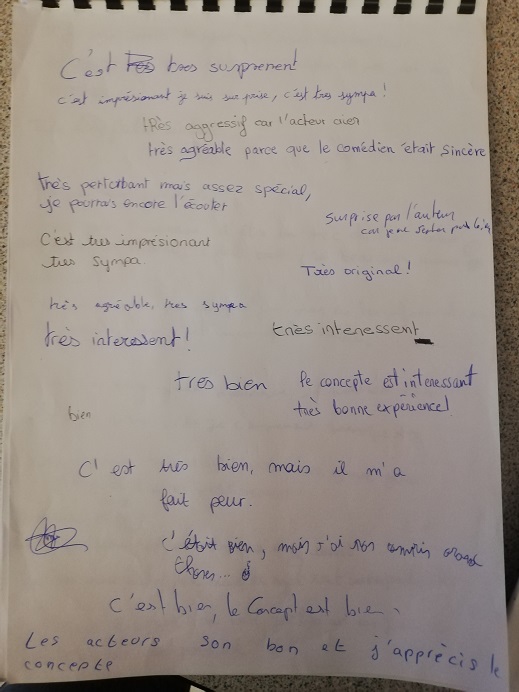 C'est tres surprenent
c'est imprésionant je suis surprise, c'est tres sympa !
très aggressif car l'acteur
très agréable parce que le comédien était sincère
très perturbant mais assez spécial,
je pourrais encore l'écouter
surprise par l'auteur
car je ne
C'est tres imprésionant
tres sympa.
Très original !
très agréable, tres sympa
très interessent !
très interessent
tres bien
le concepte est interessant
très bonne expérience !
bien
C'est très bien, mais il m'a
fait peur.
c'était bien, mais j'ai compris
chose...
C'est bien, le Concept est bien.
Les acteurs son bon et j'apprécis le
concepte